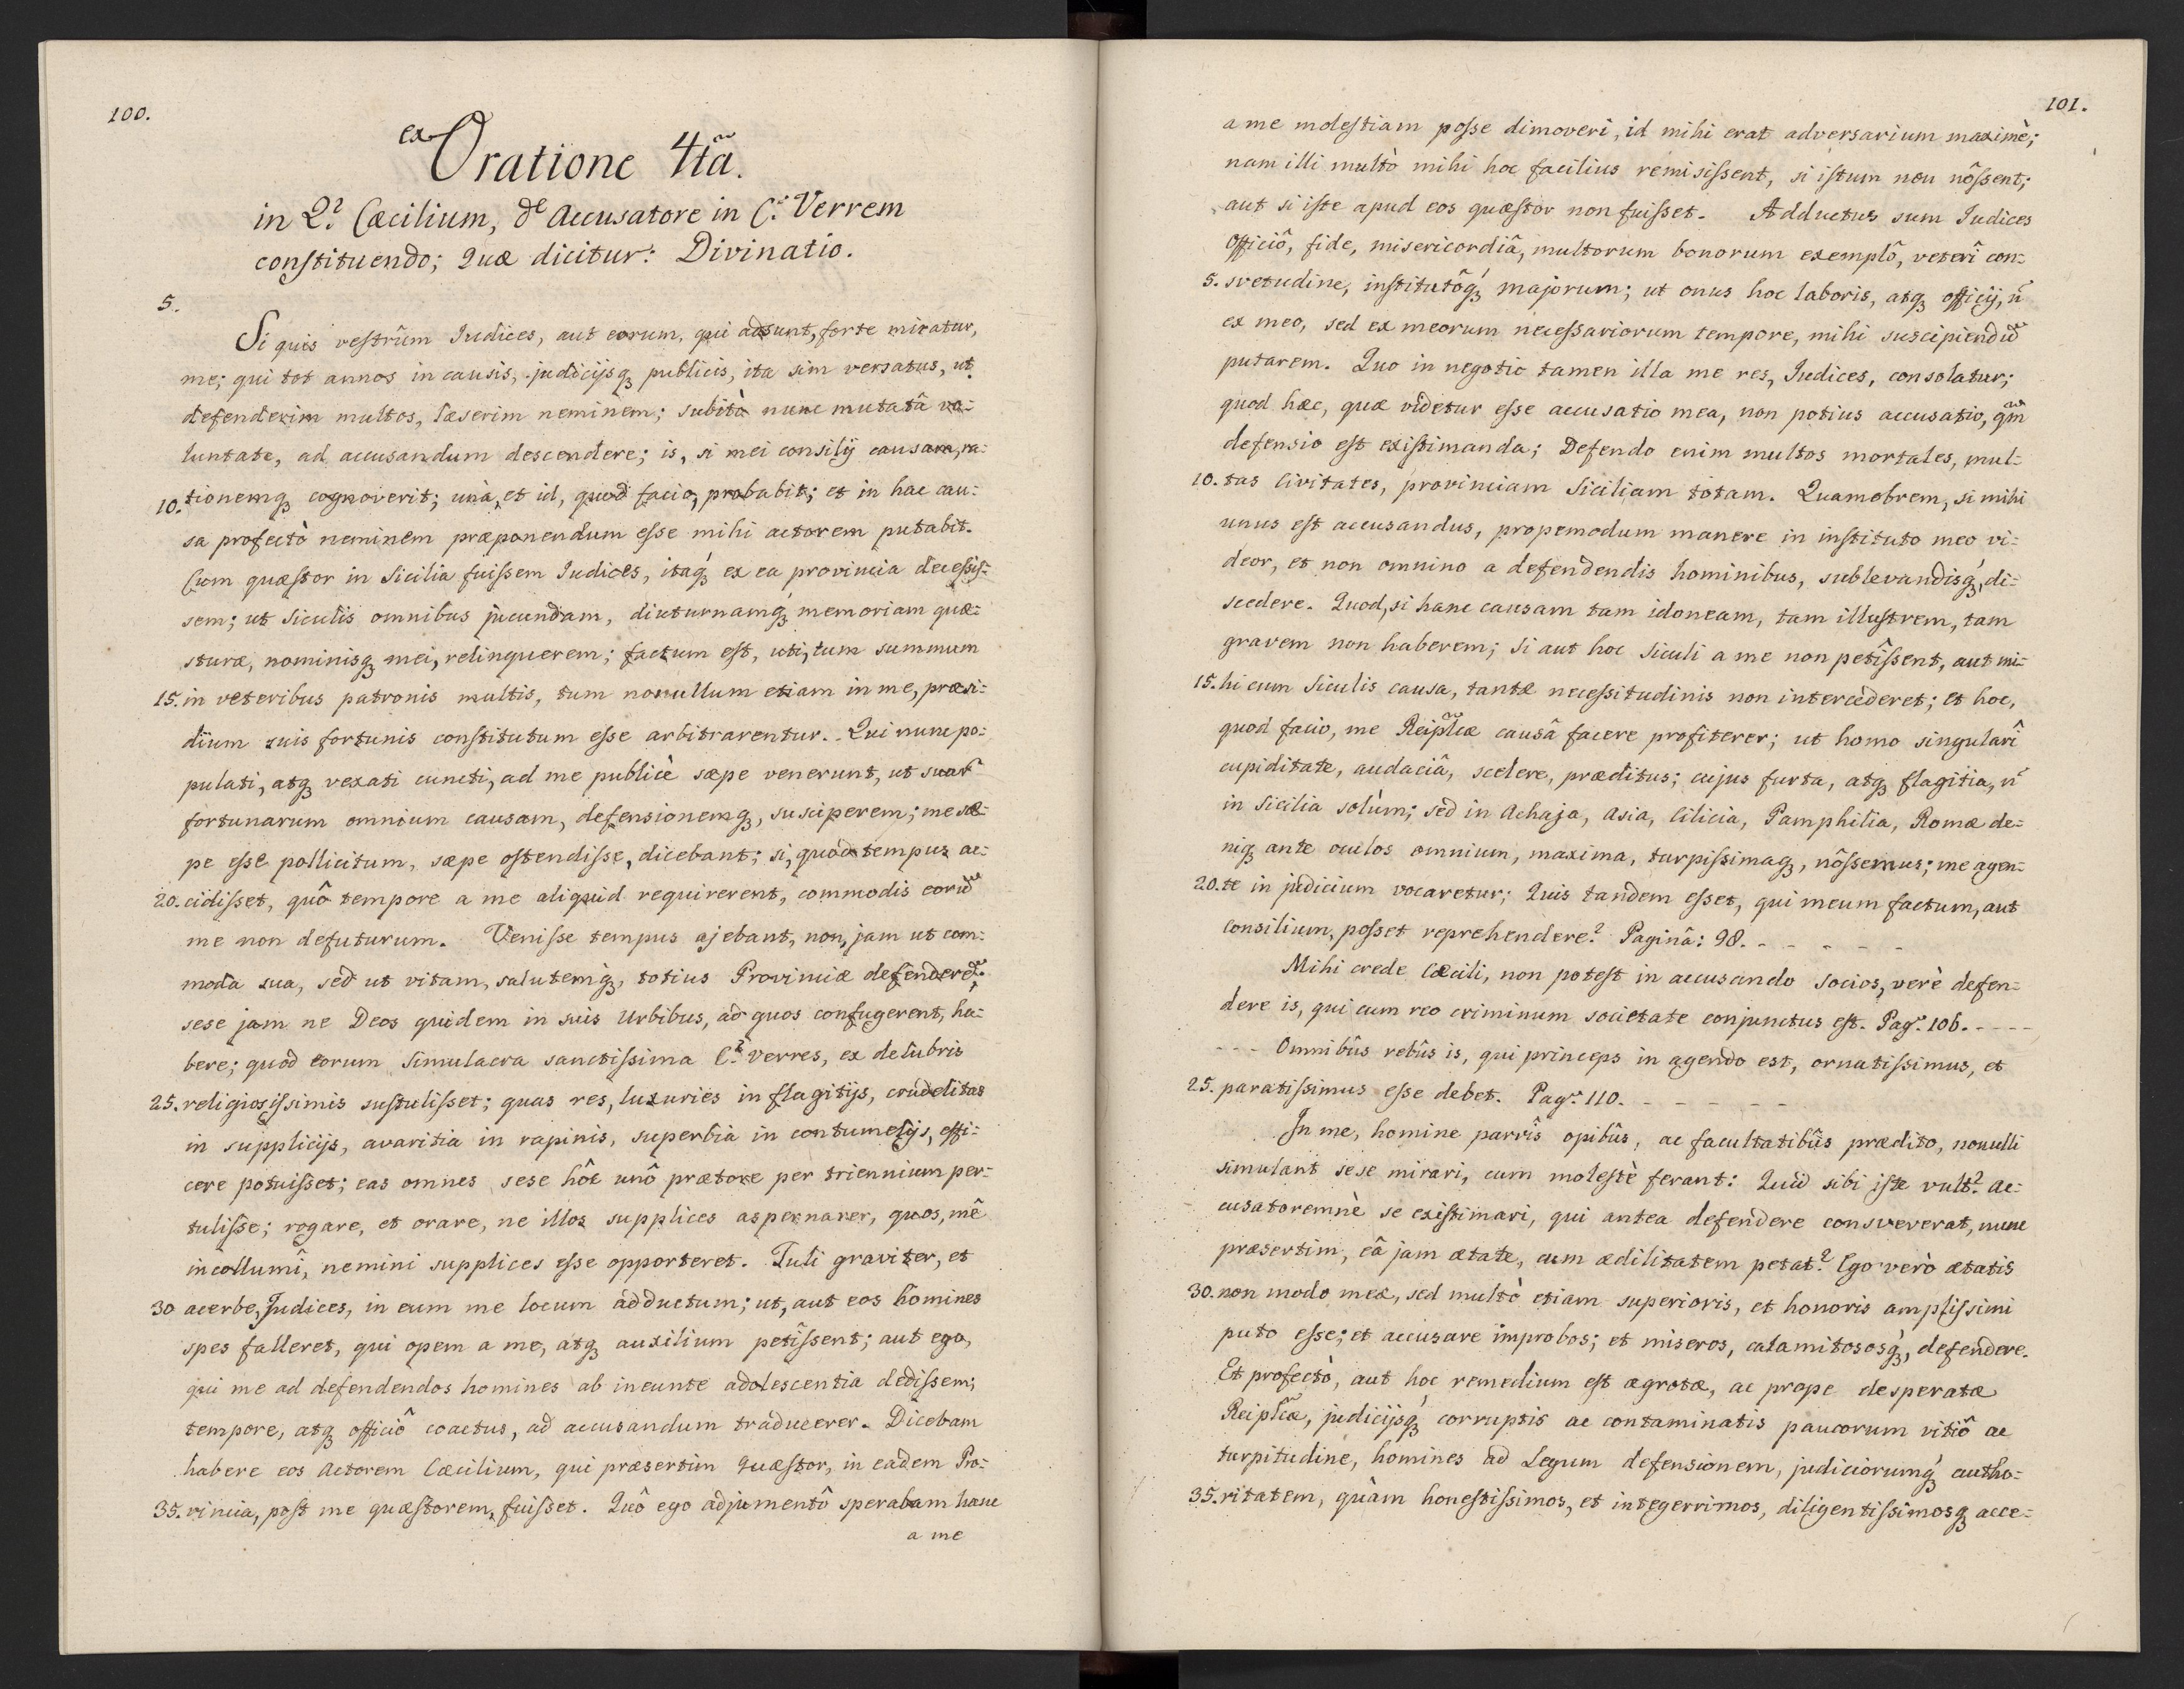 100.
ex Oratione 4tã.
in Q. Cæcilium, de Accusatore in C. Verrem
constituendo; Quæ dicitur: Divinatio.
5.
Si quis vestrûm Iudices, aut eorum, qui adsunt, forte miratur,
me; qui tot annos in causis, judicijsq́ publicis, ita sim versatus, ut
defenderim multos, læserim neminem; subitò nunc mutatâ vo-
luntate, ad accusandum descendere; is, si mei consilij causam, ra-
10. tionemq́ cognoverit; unà, et id, quod facio, probabit; et in hac cau-
sa profectò neminem præponendum esse mihi actorem putabit.
Cum quæstor in Sicilia fuissem Iudices, itaq́ ex ea provincia decessis-
sem; ut Siculis omnibus jucundam, diuturnamq́ memoriam quæ-
sturæ, nominisq́ mei, relinquerem; factum est, uti, tum summum
15. in veteribus patronis multis, tum nonullum etiam in me, præsi-
dium suis fortunis constitutum esse arbitrarentur. Qui nunc po-
pulati, atq́ vexati cuncti, ad me publicè sæpe venerunt, ut suar̃
fortunarum omnium causam, defensionemq́, susciperem; me sæ-
pe esse pollicitum, sæpe ostendisse, dicebant; si, quod tempus ac-
20. cidisset, quô tempore a me aliquid requirerent, commodis eorũ
me non defuturum. Venisse tempus ajebant, non, jam ut com-
moda sua, sed ut vitam, salutemq́, totius Provinciæ defenderẽ;
sese jam ne Deos quidem in suis Urbibus, ad quos confugerent, ha-
bere; quod eorum Simulacra sanctissima C. Verres, ex delubris
25. religiosissimis sustulisset; quas res, luxuries in flagitijs, crudelitas
in supplicijs, avaritia in rapinis, superbia in contumelijs, effi-
cere potuisset; eas omnes sese hôc unô prætore per triennium per-
tulisse; rogare, et orare, ne illos supplices aspernarer, quos, mê
incollumî, nemini supplices esse opporteret. Tuli graviter, et
30 acerbe, Iudices, in eum me locum adductum; ut, aut eos homines
spes falleret, qui opem a me, atq́ auxilium petîssent; aut ego,
qui me ad defendendos homines ab ineunte adolescentia dedissem;
tempore, atq́ officiô coactus, ad accusandum traducerer. Dicebam
habere eos Actorem Cæcilium, qui præsertim Quæstor, in eadem Pro-
35. vincia, post me quæstorem, fuisset. Quô ego adjumentô sperabam hanc
a me
101.
a me molestiam posse dimoveri, id mihi erat adversarium maximè;
nam illi multò mihi hoc facilius remisissent, si istum non nôssent;
aut si iste apud eos quæstor non fuisset. Adductus sum Iudices
Officiô, fide, misericordiâ, multorum bonorum exemplô, veterî con-
5. svetudine, institutôq́ majorum; ut onus hoc laboris, atq́ officij, ñ
ex meo, sed ex meorum necessariorum tempore, mihi suscipiendũ
putarem. Quo in negotio tamen illa me res, Iudices, consolatur;
quod hæc, quæ videtur esse accusatio mea, non potius accusatio, qm̃
defensio est existimanda; Defendo enim multos mortales, mul-
10. tas Civitates, provinciam Siciliam totam. Quamobrem, si mihi
unus est accusandus, propemodum manere in instituto meo vi-
deor, et non omnino a defendendis hominibus, sublevandisq́, di-
scedere. Quod, si hanc causam tam idoneam, tam illustrem, tam
gravem non haberem; si aut hoc Siculi a me non petîssent, aut mi-
15. hi cum Siculis causa, tantæ necessitudinis non intercederet; et hoc,
quod facio, me Reiplcæ causâ facere profiterer; ut homo singularî
cupiditate, audaciâ, scelere, præditus; cujus furta, atq́ flagitia, ñ
in Sicilia solùm; sed in Achaja, Asia, Cilicia, Pamphilia, Romæ de-
niq́ ante oculos omnium, maxima, turpissimaq́, nôssemus; me agen-
20. te in judicium vocaretur; Quis tandem esset, qui meum factum, aut
consilium, posset reprehendere? Paginâ: 98. - - - - - -
Mihi crede Cæcili, non potest in accusando socios, verè defen-
dere is, qui cum reo criminum societate conjunctus est. Pag. 106. - - - -
- - - Omnibûs rebûs is, qui princeps in agendo est, ornatissimus, et
25. paratissimus esse debet. Pag. 110. - - - - - -
In me, homine parvîs opibûs, ac facultatibûs prædito, nonulli
simulant sese mirari, cum molestè ferant: Quid sibi iste vult? Ac-
cusatoremnè se existimari, qui antea defendere consveverat, nunc
præsertim, eâ jam ætate, cum ædilitatem petat? Ego verò ætatis
30. non modo meæ, sed multò etiam superioris, et honoris amplissimi
puto esse; et accusare improbos; et miseros, calamitososq́, defendere.
Et profectò, aut hoc remedium est ægrotæ, ac prope desperatæ
Reiplcæ, judicijsq́ corruptis ac contaminatis paucorum vitiô ac
turpitudine, homines ad Legum defensionem, judiciorumq́ autho-
35. ritatem, quàm honestissimos, et integerrimos, diligentissimosq́ acce-